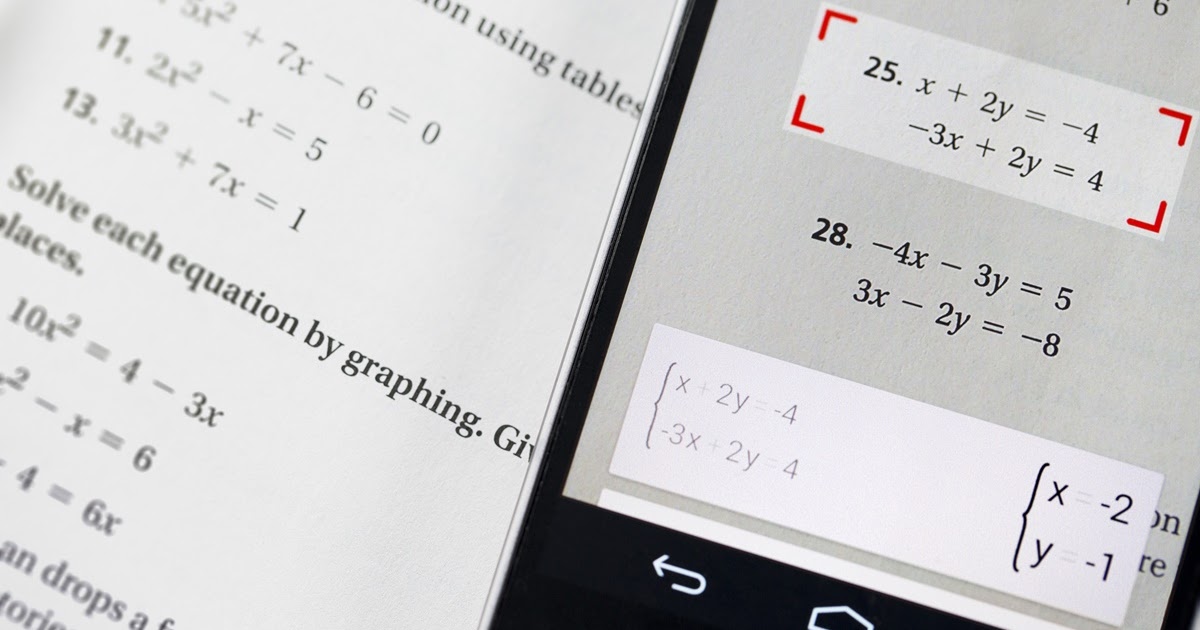 on using tables
5x² + 7x − 6 = 0
11. 2x² − x = 5
13. 3x² + 7x = 1
Solve each equation by graphing. Giv
places.
10x² = 4 − 3x
x² − x = 6
4 = 6x
an drops a
6
25. x + 2y = −4
−3x + 2y = 4
28. −4x − 3y = 5
3x − 2y = −8
x + 2y = -4
-3x + 2y = 4
x = -2
y = -1
on
re